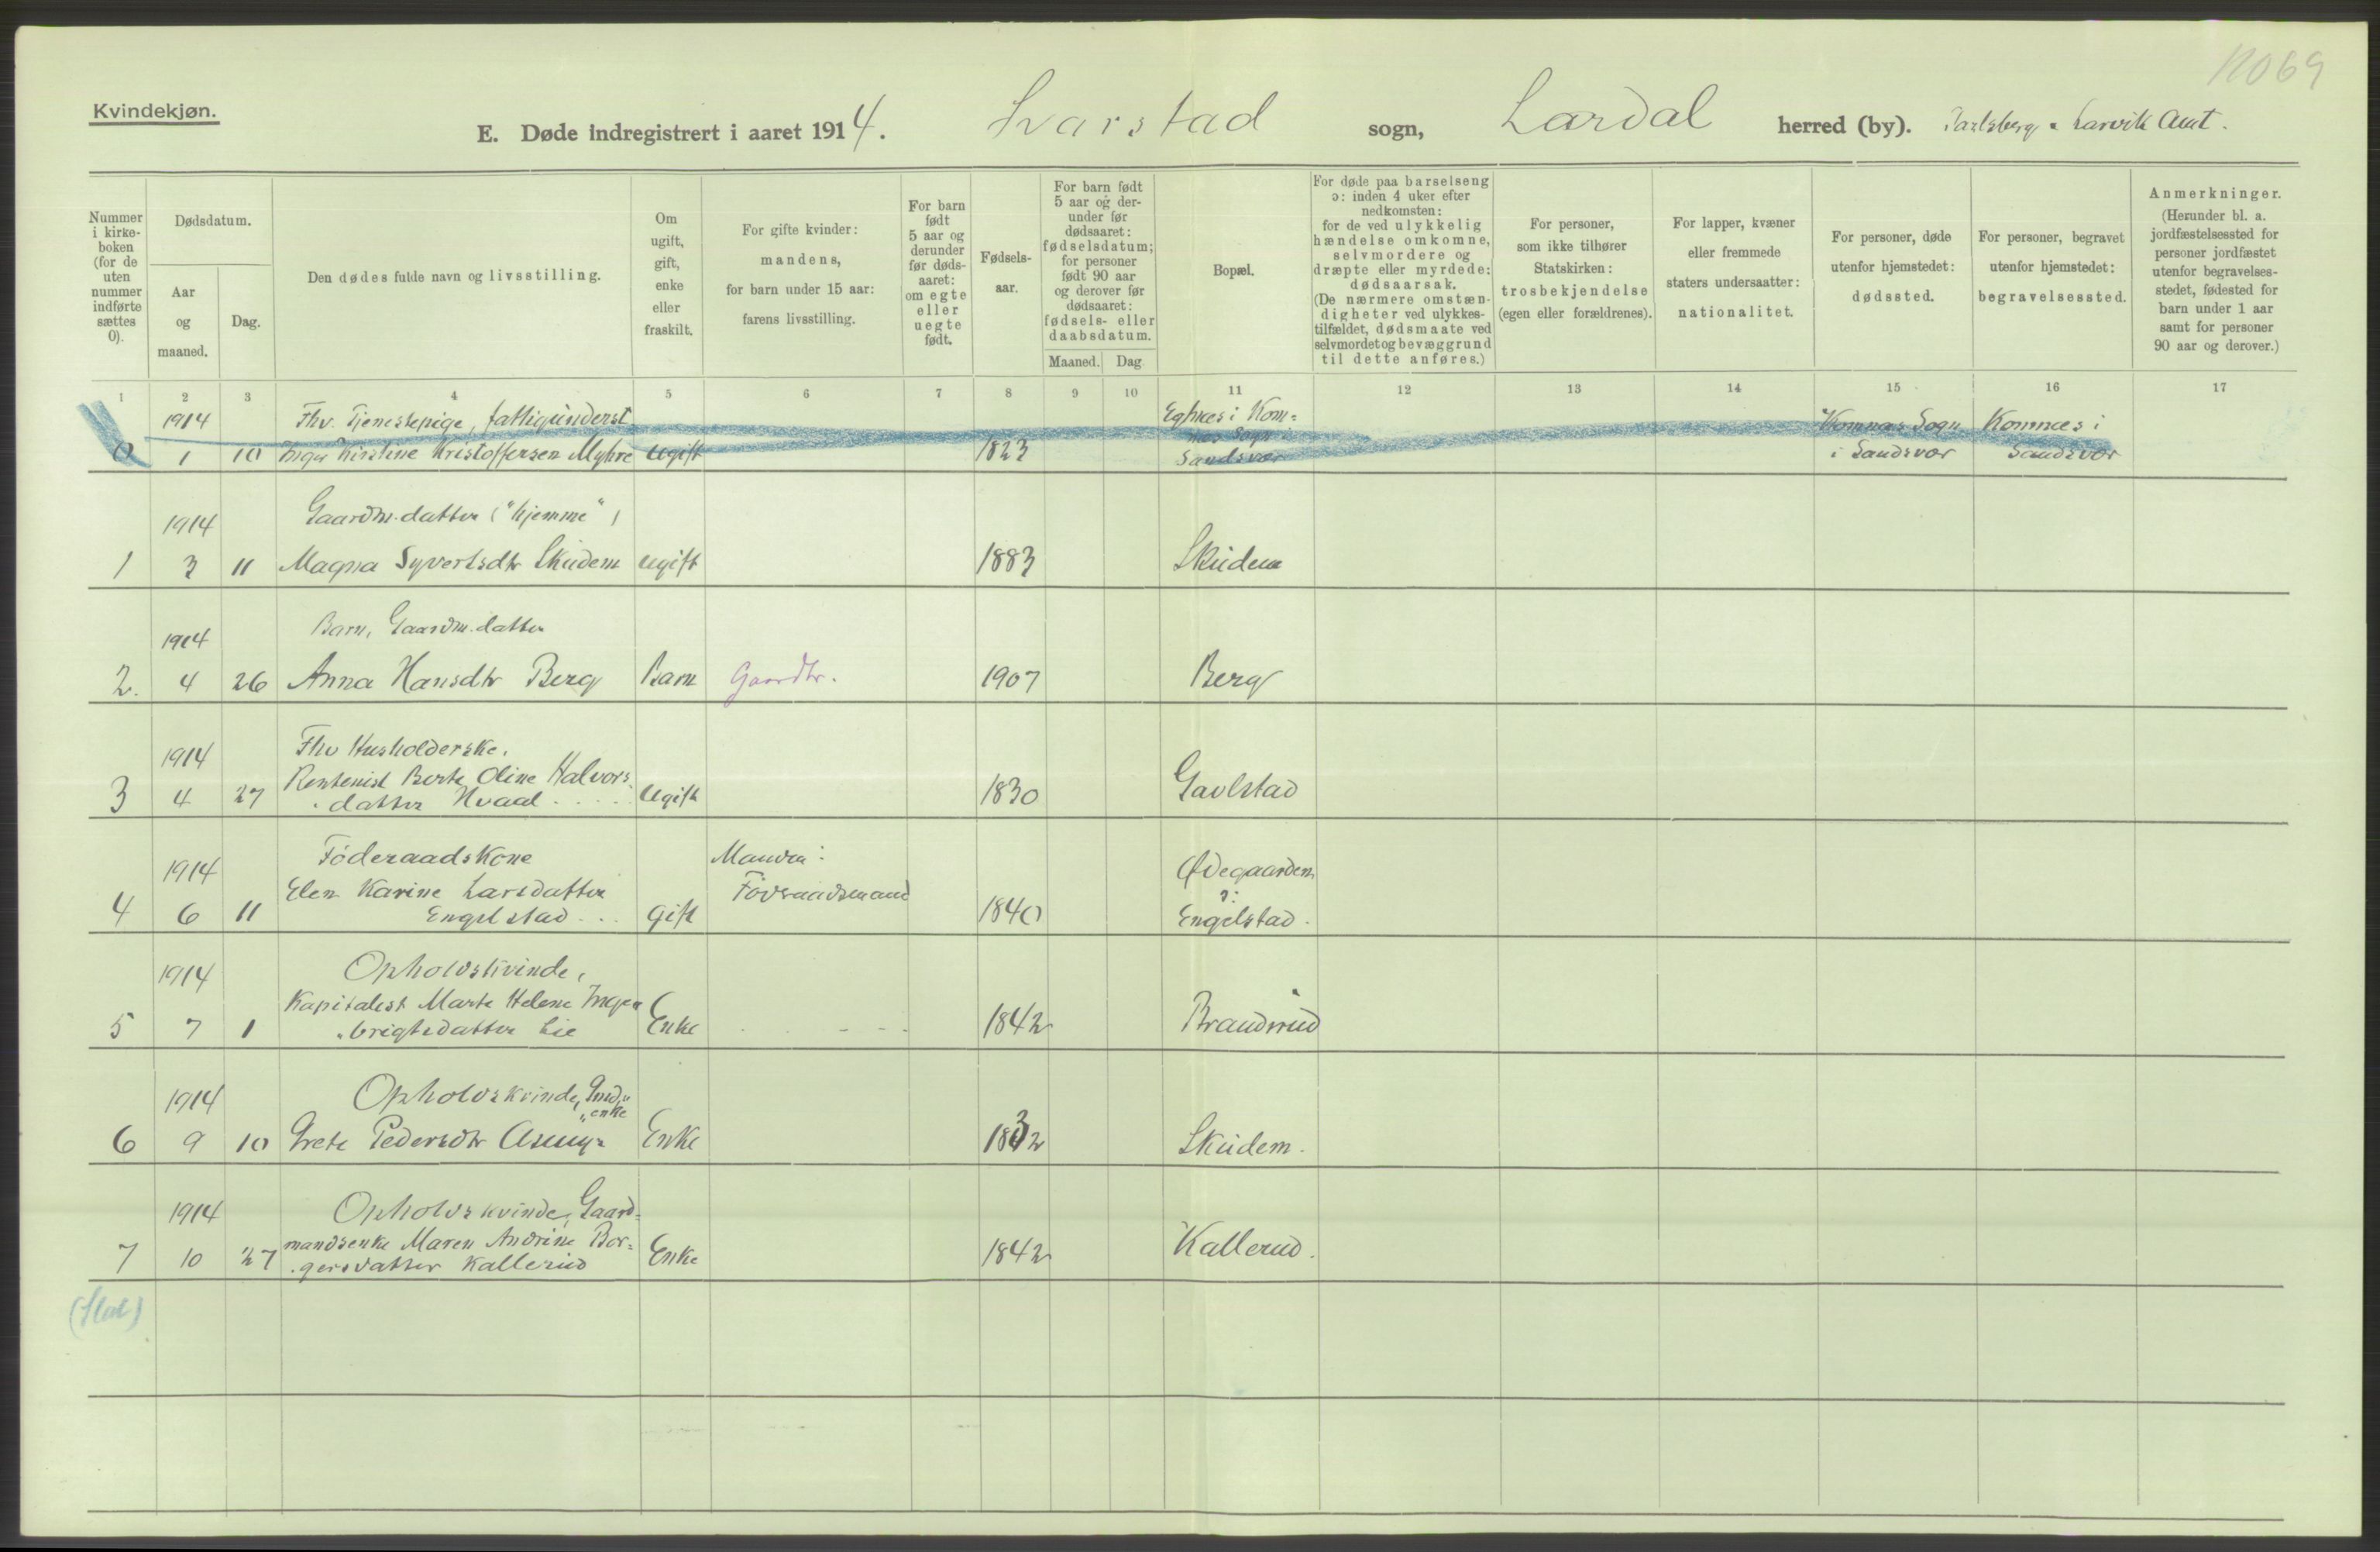 12069
Kvindekjøn.
E. Døde indregistrert i aaret 1914. Svarstad sogn, Lardal herred (by). Jarlsberg & Larvik Amt.
Nummer i kirke-boken (for de uten nummer indførte sættes 0).
Dødsdatum.
Aar og maaned.
Dag.
Den dødes fulde navn og livsstilling.
Om ugift, gift, enke eller fraskilt.
For gifte kvinder: mandens, for barn under 15 aar: farens livsstilling.
For barn født 5 aar og derunder før døds-aaret: om egte eller uegte født.
Fødsels-aar.
For barn født 5 aar og der-under før dødsaaret: fødselsdatum; for personer født 90 aar og derover før dødsaaret: fødsels- eller daabsdatum.
Maaned. Dag
Bopæl.
For døde paa barselseng ɔ: inden 4 uker efter nedkomsten: for de ved ulykkelig hændelse omkomne, selvmordere og dræpte eller myrdede: dødsaarsak. (De nærmere omstæn-digheter ved ulykkes-tilfældet, dødsmaate ved selvmordet og bevæggrund til dette anføres.)
For personer, som ikke tilhører Statskirken: trosbekjendelse (egen eller forældrenes).
For lapper, kvæner eller fremmede staters undersaatter: nationalitet.
For personer, døde utenfor hjemstedet: dødssted.
For personer, begravet utenfor hjemstedet: begravelsessted.
Anmerkninger. (Herunder bl. a. jordfæstelsessted for personer jordfæstet utenfor begravelses-stedet, fødested for barn under 1 aar samt for personer 90 aar og derover.)
1 2 3 4 5 6 7 8 9 10 11 12 13 14 15 16 17
1914 Fhv. Tjenestepige, fattigunderst. i Kom= Komnæs Sogn Komnæs i
0 1 10 Inger Kirstine Kristoffersen Myhre ugift 1823 Sandsvær i Sandsvær Sandsvær
1914 Gaardm.datter ("hjemme")
1 3 11 Magna Syvertsdtr Skudem ugift 1883 Skudem
1914 Barn, Gaardm.datter
2. 4 26 Anna Hansdtr Berg Barn Gaardbr. 1907 Berg
1914 Fhv Husholderske,
Rentenist Berte Oline Halvors-
3 4 27 datter Hvaal Ugift 1830 Gavlstad
1914 Föderaadskone Manden: Ødegaarden
Elen Karine Larsdatter Föderaadsmand ɔ:
4 6 11 Engelstad Gift 1840 Engelstad.
1914 Opholdskvinde,
Kapitalist Marte Helene Inge-
5 7 1 brigtsdatter Lie Enke 1842 Brandsrud
1914 Opholdskvinde, Gmd.
"enke
6 9 10 Grete Pedersdtr Enke 1832 Skudem.
1914 Opholdskvinde, Gaard=
mandsenke Maren Andrine Bor=
7 10 27 gersdatter Kallerud Enke 1842 Kallerud.